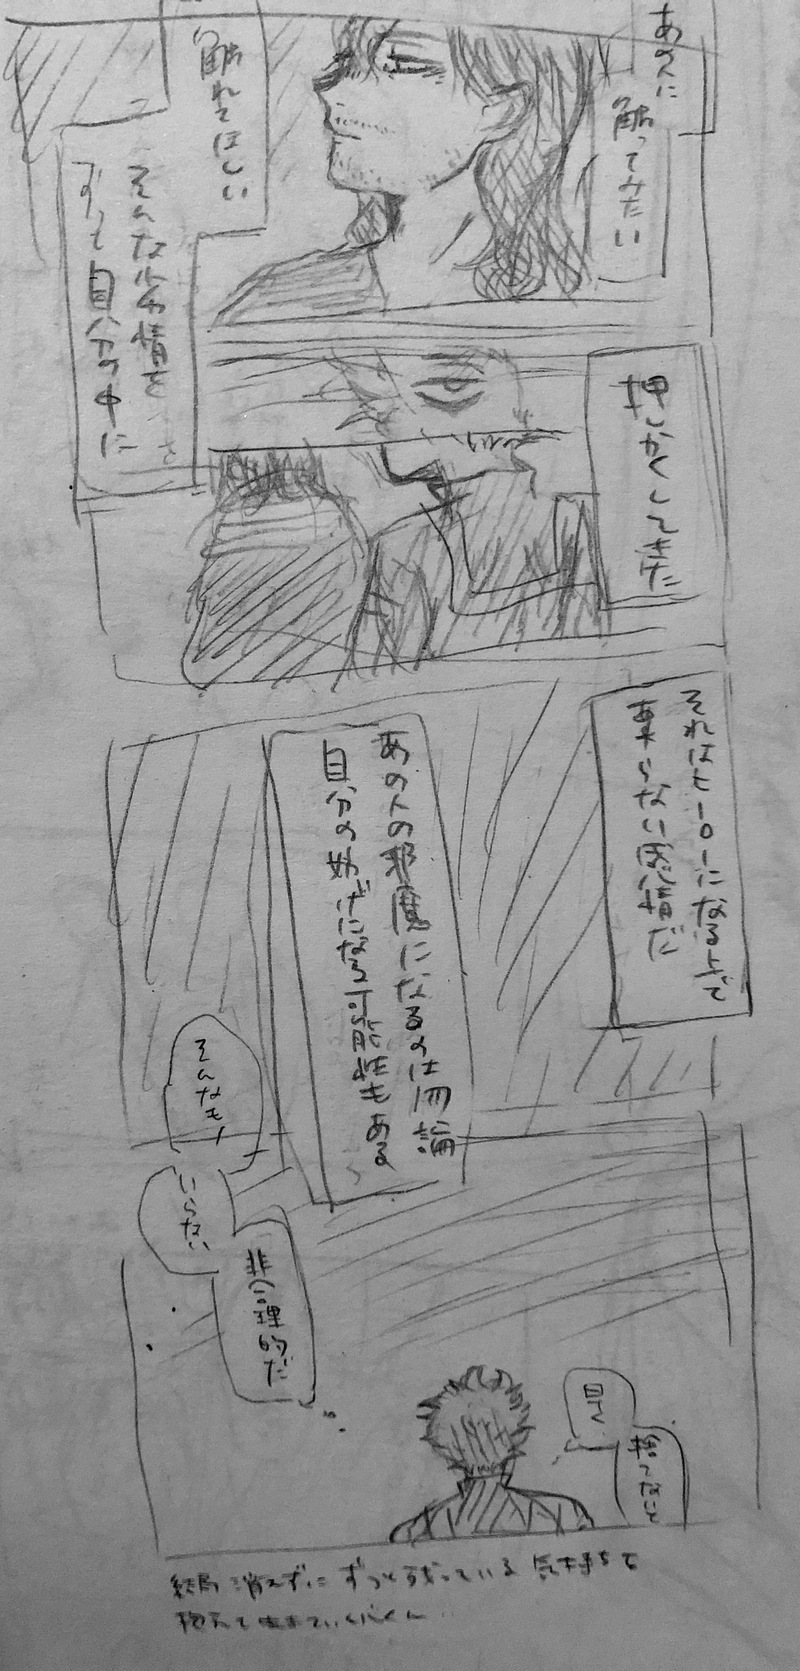 あの人に
触ってみたい
触れてほしい
そんな劣情を
ずっと自分の中に
押しかくしてきた
それはヒーローになる上で
要らない感情だ
あの人の邪魔になるのは勿論
自分の妨げになる可能性もある
そんなもん
いらない
非合理的だ
早く
捨てないと
結局消えずにずっと残っている気持ちを
抱えて生きていく